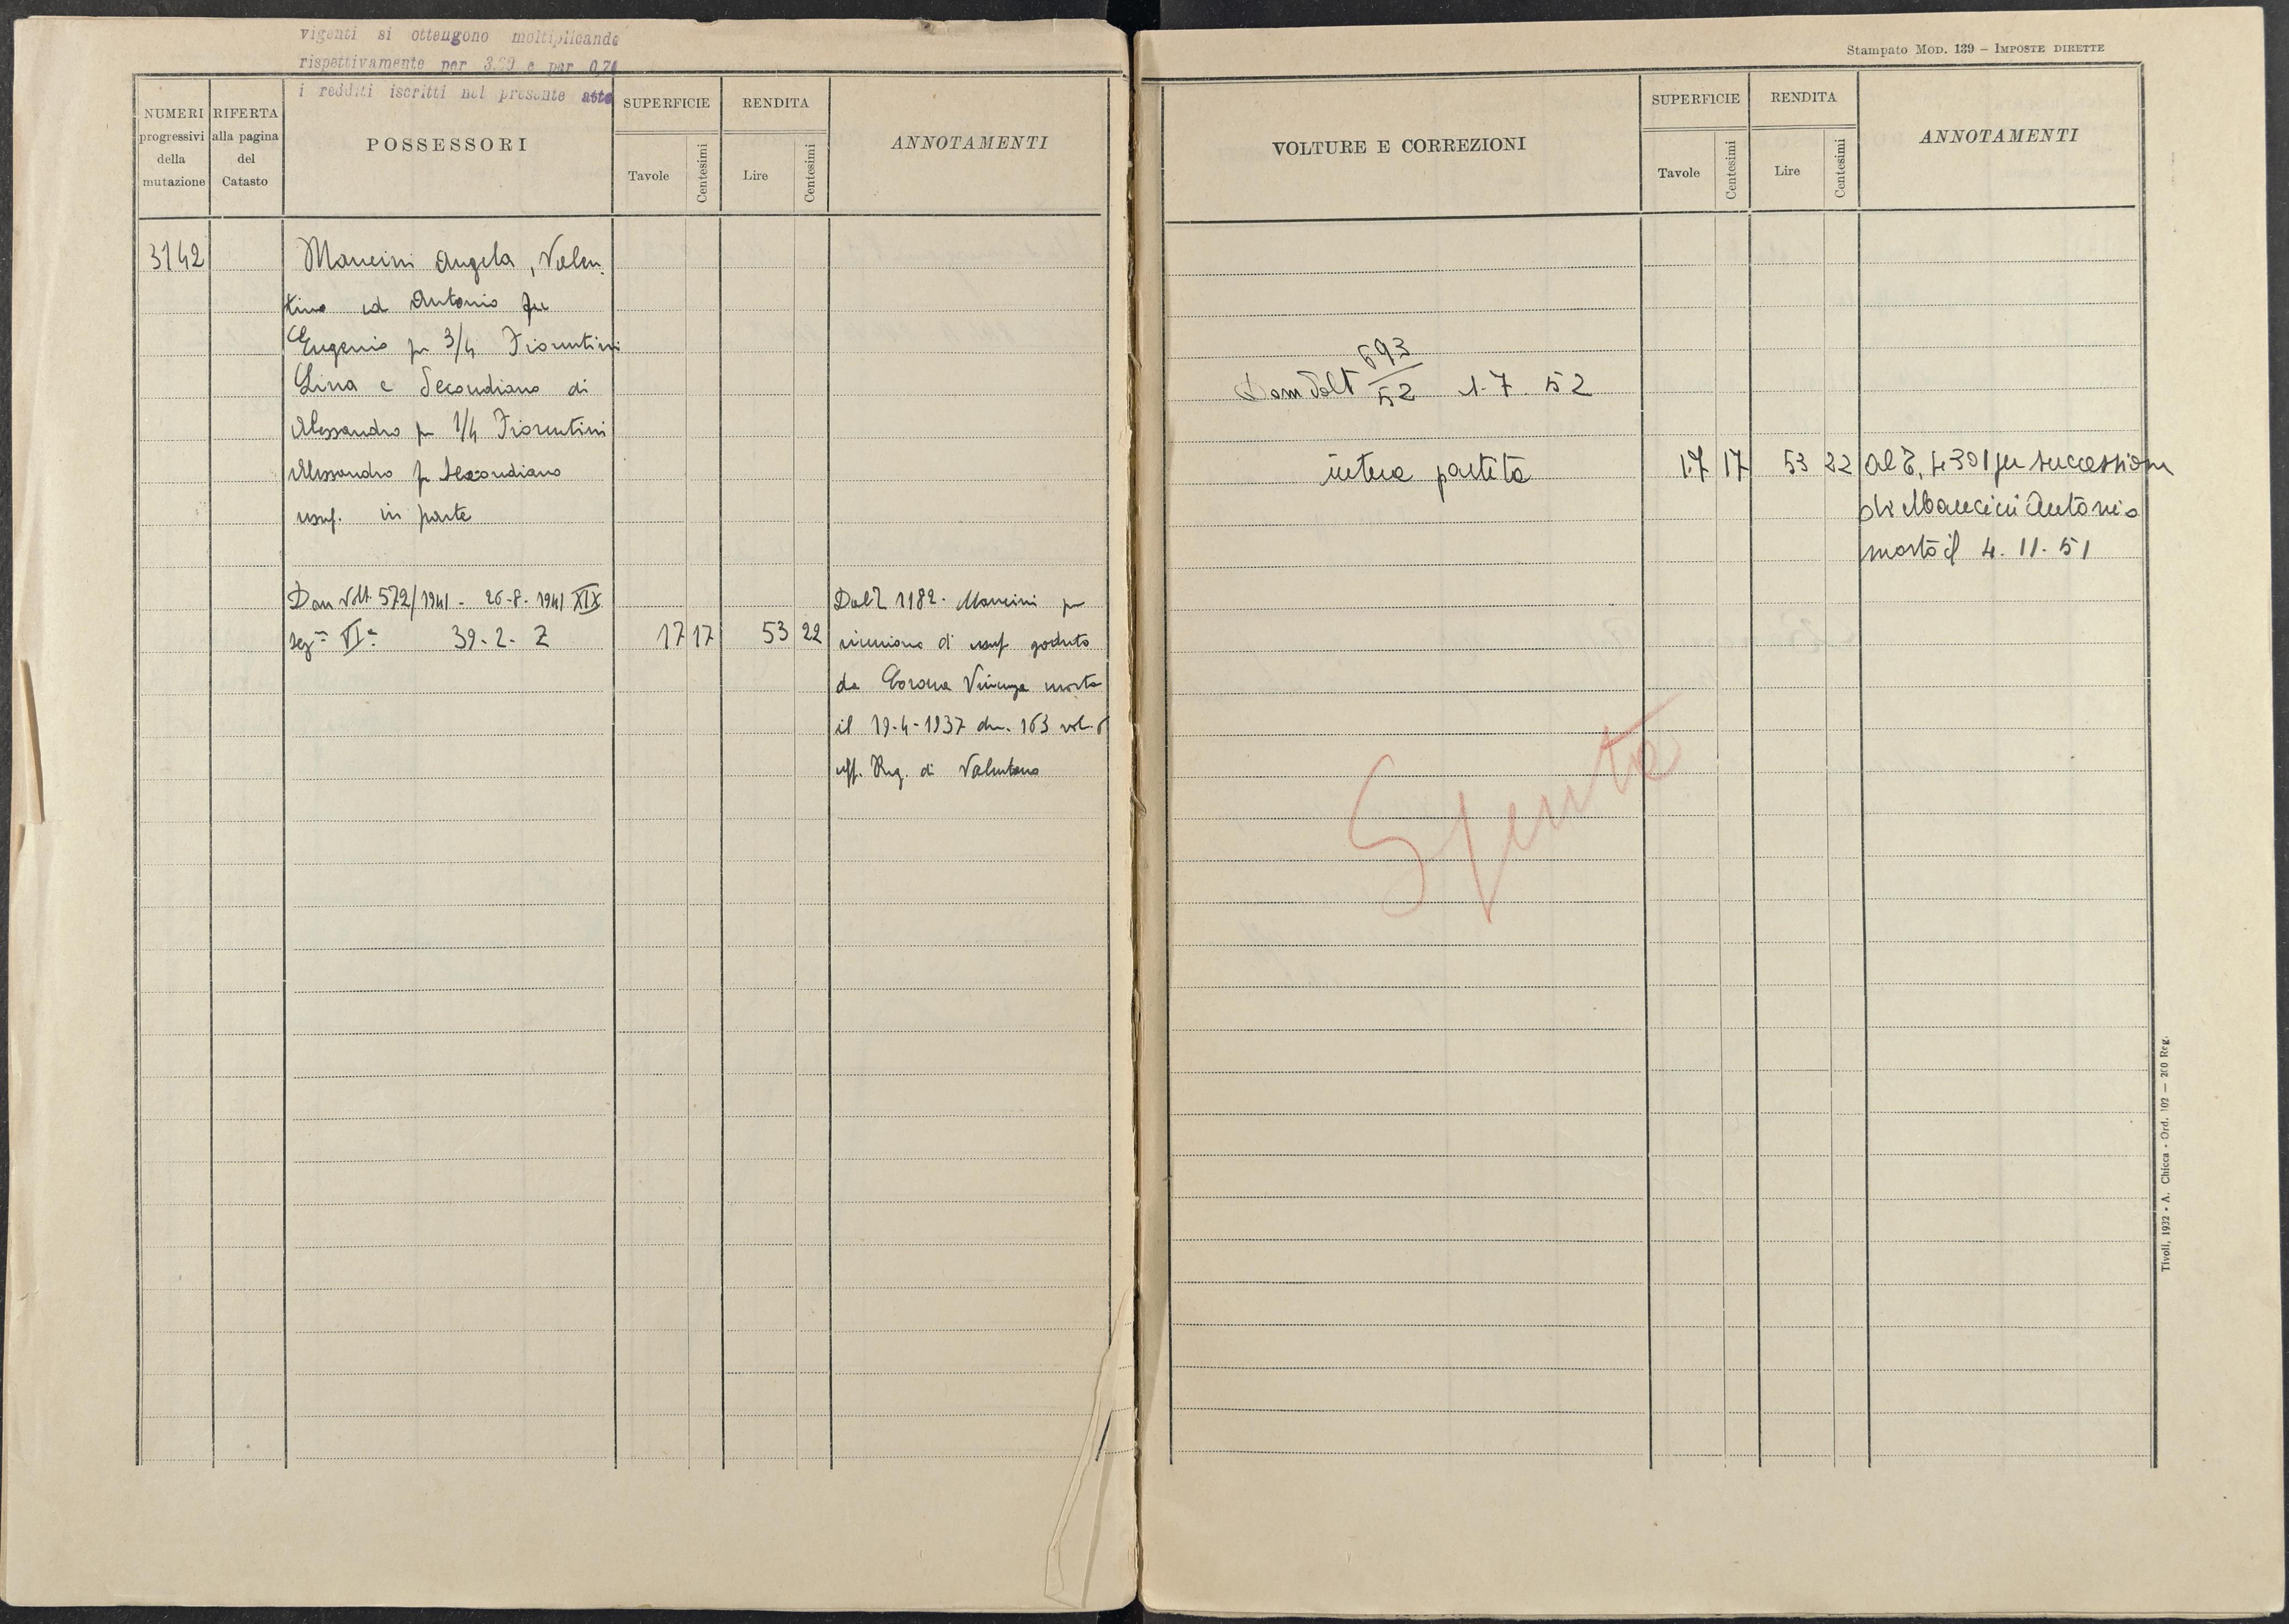 vigenti si ottengono moltiplicando
rispettivamente per 3.20 e per 0,74
i redditi iscritti nel presente atto
NUMERI
progressivi
della
mutazione
RIFERTA
alla pagina
del
Catasto
POSSESSORI
SUPERFICIE
Tavole
Centesimi
RENDITA
Lire
Centesimi
ANNOTAMENTI
3142
Mancini Angela, Valen
tino ed Antonio fu
Eugenio per 3/4 Fiorentini
Lina e Secondiano di
Alessandro per 1/4 Fiorentini
Alessandro fu Secondiano
usuf. in parte
Dom Volt. 572/1941 - 26-8-1941 XIX
sezne VIa 39-2-Z
17 17
53 22
Dal Z 1182. Mancini per
riunione di usuf goduto
da Corona Vincenza morta
il 19-4-1937 den. 163 vol. 6
uff. Reg. di Valentano
Stampato Mod. 139 – Imposte dirette
VOLTURE E CORREZIONI
SUPERFICIE
Tavole
Centesimi
RENDITA
Lire
Centesimi
ANNOTAMENTI
693
Dom Volt 52 1.7.52
intera partita
17 17
53 22
al Z, 4301 per successione
di Mancini Antonio
morto il 4.11.51
Spenta
Tivoli, 1932 - A. Chicca - Ord. 102 — 200 Reg.